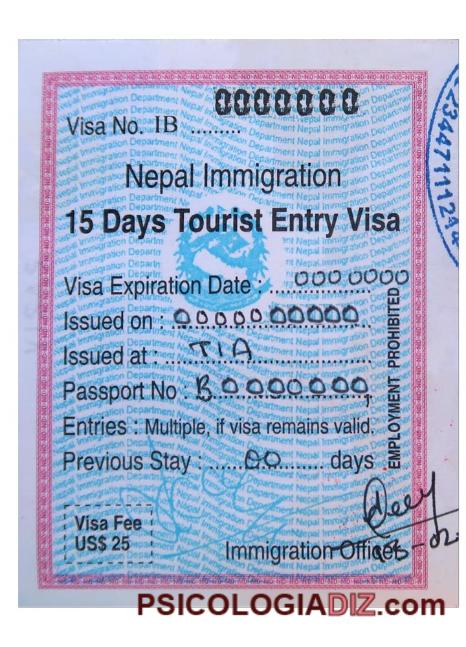 0000000
Visa No. IB .........
Nepal Immigration
15 Days Tourist Entry Visa
Visa Expiration Date : 000 0000
Issued on : 00000 00000
Issued at : TIA
Passport No : B 0000000
Entries : Multiple, if visa remains valid.
Previous Stay : 00 days
EMPLOYMENT PROHIBITED
Visa Fee
US$ 25
Immigration Officer
PSICOLOGIADIZ.com